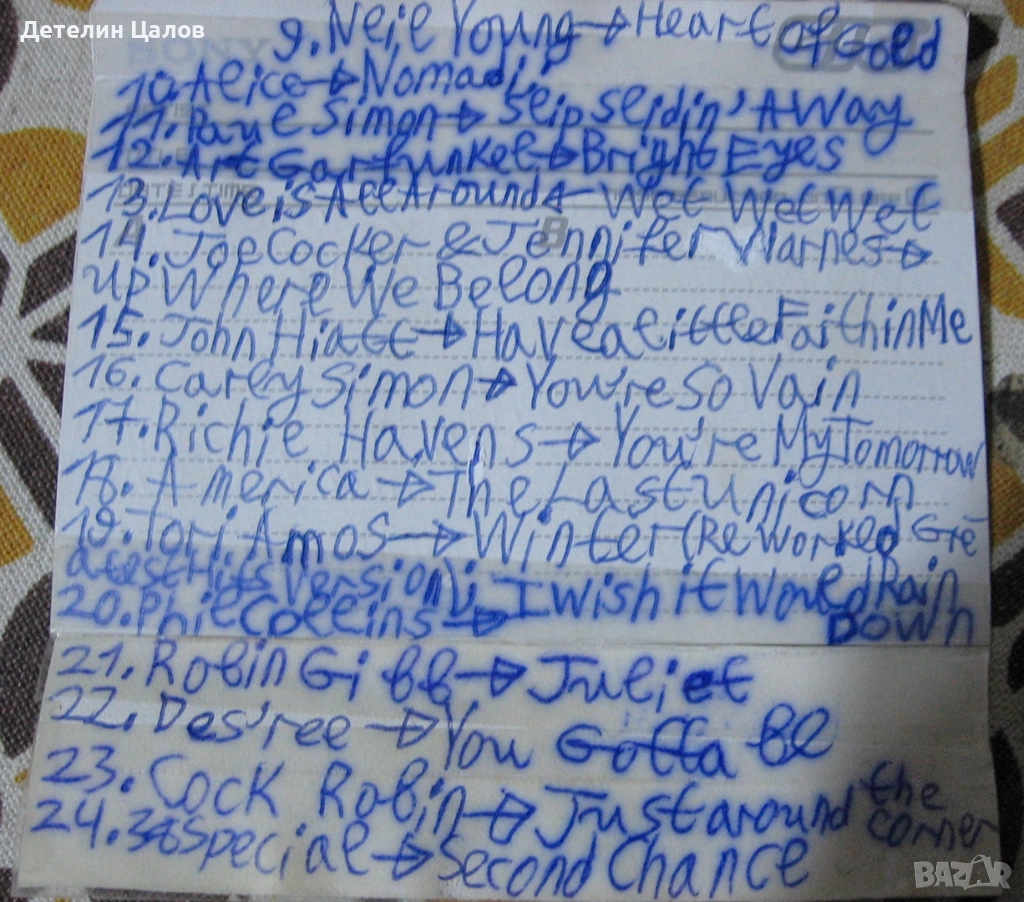 Детелин Цалов
9. Neil Young → Heart of Gold
10. Alice → Nomadi
11. Paul Simon → Slip Slidin' A Way
12. Art Garfunkel → Bright Eyes
13. Love is All Around ← Wet Wet Wet
14. Joe Cocker & Jennifer Warnes →
Up Where We Belong
15. John Hiatt → Have a little Faith in Me
16. Carly Simon → You're So Vain
17. Richie Havens → You're My Tomorrow
18. America → The Last Unicorn
19. Tori Amos → Winter (Re Worked Gre
atest Hits Version);
20. Phil Collins → I Wish it Would Rain
Down
21. Robin Gibb → Juliet
22. Des'ree → You Gotta Be
23. Cock Robin → Just around the
corner
24. 38 Special → Second Chance
BAZAR